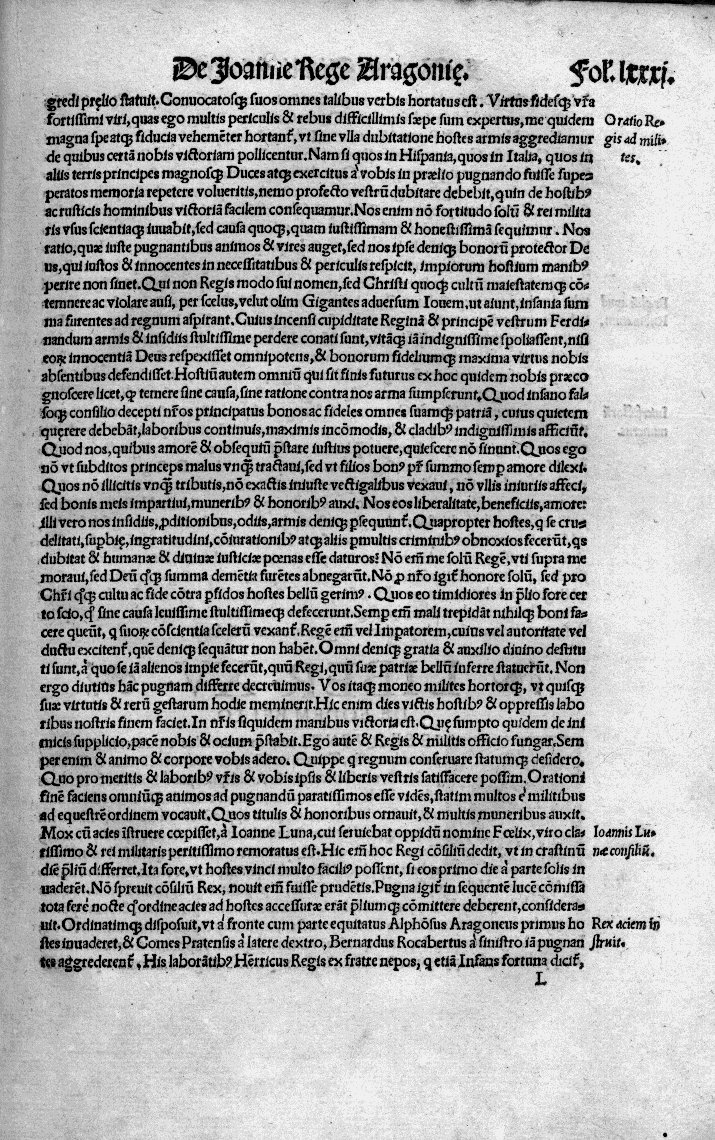 De Joanne Rege Aragonię. Fol. lxxxj.
gredi pręlio statuit. Convocatosq; suos omnes talibus verbis hortatus est. Virtus fidesq; vr̃a
fortissimi viri, quas ego multis periculis & rebus difficillimis sæpe sum expertus, me quidem
magna spe atq; fiducia vehemēter hortant᷑, vt sine vlla dubitatione hostes armis aggrediamur
de quibus certā nobis victoriam pollicentur. Nam si quos in Hispania, quos in Italia, quos in
aliis terris principes magnosq; Duces atq; exercitus à vobis in prælio pugnando fuisse supe
peratos memoria repetere volueritis, nemo profecto vestrū dubitare debebit, quin de hostibꝰ
ac rusticis hominibus victoriā facilem consequamur. Nos enim nō fortitudo solū & rei milita
ris vsus scientiaq; iuvabit, sed causa quoq;, quam iustissimam & honestissimā sequimur. Nos
ratio, quæ iuste pugnantibus animos & vires auget, sed nos ipse deniq; bonorū protector De
us, qui iustos & innocentes in necessitatibus & periculis respicit, impiorum hostium manibꝰ
perire non sinet. Qui non Regis modo sui nomen, sed Christi quoq; cultū maiestatemq; cō-
temnere ac violare ausi, per scelus, velut olim Gigantes adversum Iovem, ut aiunt, insania sum
ma furentes ad regnum aspirant. Cuius incensi cupiditate Reginā & principē vestrum Ferdi-
nandum armis & insidiis stultissime perdere conati sunt, vitāq; iā indignissime spoliassent, nisi
eoꝝ innocentiā Deus respexisset omnipotens, & bonorum fideliumq; maxima virtus nobis
absentibus defendisset. Hostiū autem omniū qui sit finis futurus ex hoc quidem nobis præco
gnoscere licet, ꝙ temere sine causa, sine ratione contra nos arma sumpserunt. Quod insano fal-
soq; consilio decepti nr̃os principatus bonos ac fideles omnes suamq; patriā, cuius quietem
quęrere debebāt, laboribus continuis, maximis incōmodis, & cladibꝰ indignissimis afficiūt.
Quod nos, quibus amorē & obsequiū p̄stare iustius potuere, quiescere nō sinunt. Quos ego
nō vt subditos princeps malus vnq̄ tractavi, sed vt filios bonꝰ pr̃ summo semp amore dilexi.
Quos nō illicitis vnq̄ tributis, nō exactis iniuste vectigalibus vexavi, nō vllis iniuriis affeci,
sed bonis meis impartivi, muneribꝰ & honoribꝰ auxi. Nos eos liberalitate, beneficiis, amore:
illi vero nos insidiis, ꝓditionibus, odiis, armis deniq; ꝑsequunt᷑. Quapropter hostes, q se cru-
delitati, supbię, ingratitudini, cōiurationibꝰ atq; aliis ꝑmultis criminibꝰ obnoxios fecerūt, qs
dubitat & humanæ & divinæ iusticiæ pœnas esse daturos? Nō em̄ me solū Regē, vti supra me
moravi, sed Deū q̊q; summa demētia furētes abnegarūt. Nō ꝓ nr̃o igit᷑ honore solū, sed pro
Chr̄i q̊q; cultu ac fide cōtra ꝑfidos hostes bellū gerimꝰ. Quos eo timidiores in p̄lio fore cer
to scio, ꝙ sine causa levissime stultissimeq; defecerunt. Semp em̄ mali trepidāt nihilq; boni fa-
cere queūt, q suoꝝ cōscientia scelerū vexant᷑. Regē em̄ vel Impatorem, cuius vel autoritate vel
ductu excitent᷑, quē deniq; sequātur non habēt. Omni deniq; gratia & auxilio divino destitu
ti sunt, à quo se iā alienos impie fecerūt, quū Regi, quū suæ patriæ bellū inferre statuerūt. Non
ergo diutius hāc pugnam differre decrevimus. Vos itaq; moneo milites hortorq;, vt quisq;
suæ virtutis & rerū gestarum hodie meminerit. Hic enim dies victis hostibꝰ & oppressis labo
ribus nostris finem faciet. In nr̃is siquidem manibus victoria est. Quę sumpto quidem de ini
micis supplicio, pacē nobis & ocium p̄stabit. Ego autē & Regis & militis officio fungar. Sem
per enim & animo & corpore vobis adero. Quippe q regnum conservare statumq; desidero.
Quo pro meritis & laboribꝰ vr̃is & vobis ipsis & liberis vestris satisfacere possim. Orationi
finē faciens omniūq; animos ad pugnandū paratissimos esse vidēs, statim multos è militibus
ad equestrē ordinem vocavit. Quos titulis & honoribus ornavit, & multis muneribus auxit.
Mox cū acies īstruere cœpisset, à Ioanne Luna, cui serviebat oppidū nomine Fœlix, viro cla-
rissimo & rei militaris peritissimo remoratus est. Hic em̄ hoc Regi cōsiliū dedit, vt in crastinū
diē p̄liū differret. Ita fore, vt hostes vinci multo faciliꝰ possent, si eos primo die à parte solis in
vaderēt. Nō sprevit cōsiliū Rex, novit em̄ fuisse prudētis. Pugna igit᷑ in sequentē lucē cōmissa
tota ferè nocte q̊ ordine acies ad hostes accessuræ erāt p̄liumq; cōmittere deberent, considera-
vit. Ordinatimq; disposuit, vt à fronte cum parte equitatus Alphōsus Aragoneus primus ho
stes invaderet, & Comes Pratensis à latere dextro, Bernardus Rocabertus à sinistro iā pugnan
tes aggrederent᷑. His laborātibꝰ Hērricus Regis ex fratre nepos, q etiā Infans fortuna dicit᷑,
L
Oratio Re-
gis ad mili-
tes.
Ioannis Lu-
næ consiliū.
Rex aciem in
struit.